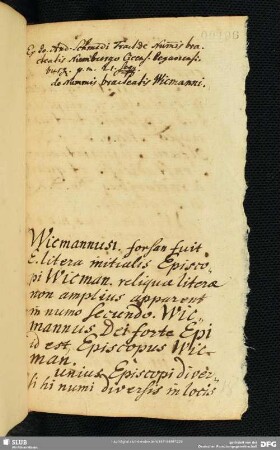 Ex Jo. And. Schmidi Tract. de Numis bra-
cteatis Numburgo Cicens. Pegaviensi-
bus p. m. 21.
de Nummis bracteatis Wicmanni.
Wicmannus 1. forsan fuit
E. litera initialis Episco-
pi Wicman. reliquæ literæ
non amplius apparent
in numo secundo. Wic-
mannus Dei forte Epi
id est, Episcopus Wic-
man.
unius Episcopi diver-
si hi numi diversis in locis
SLUB
DFG